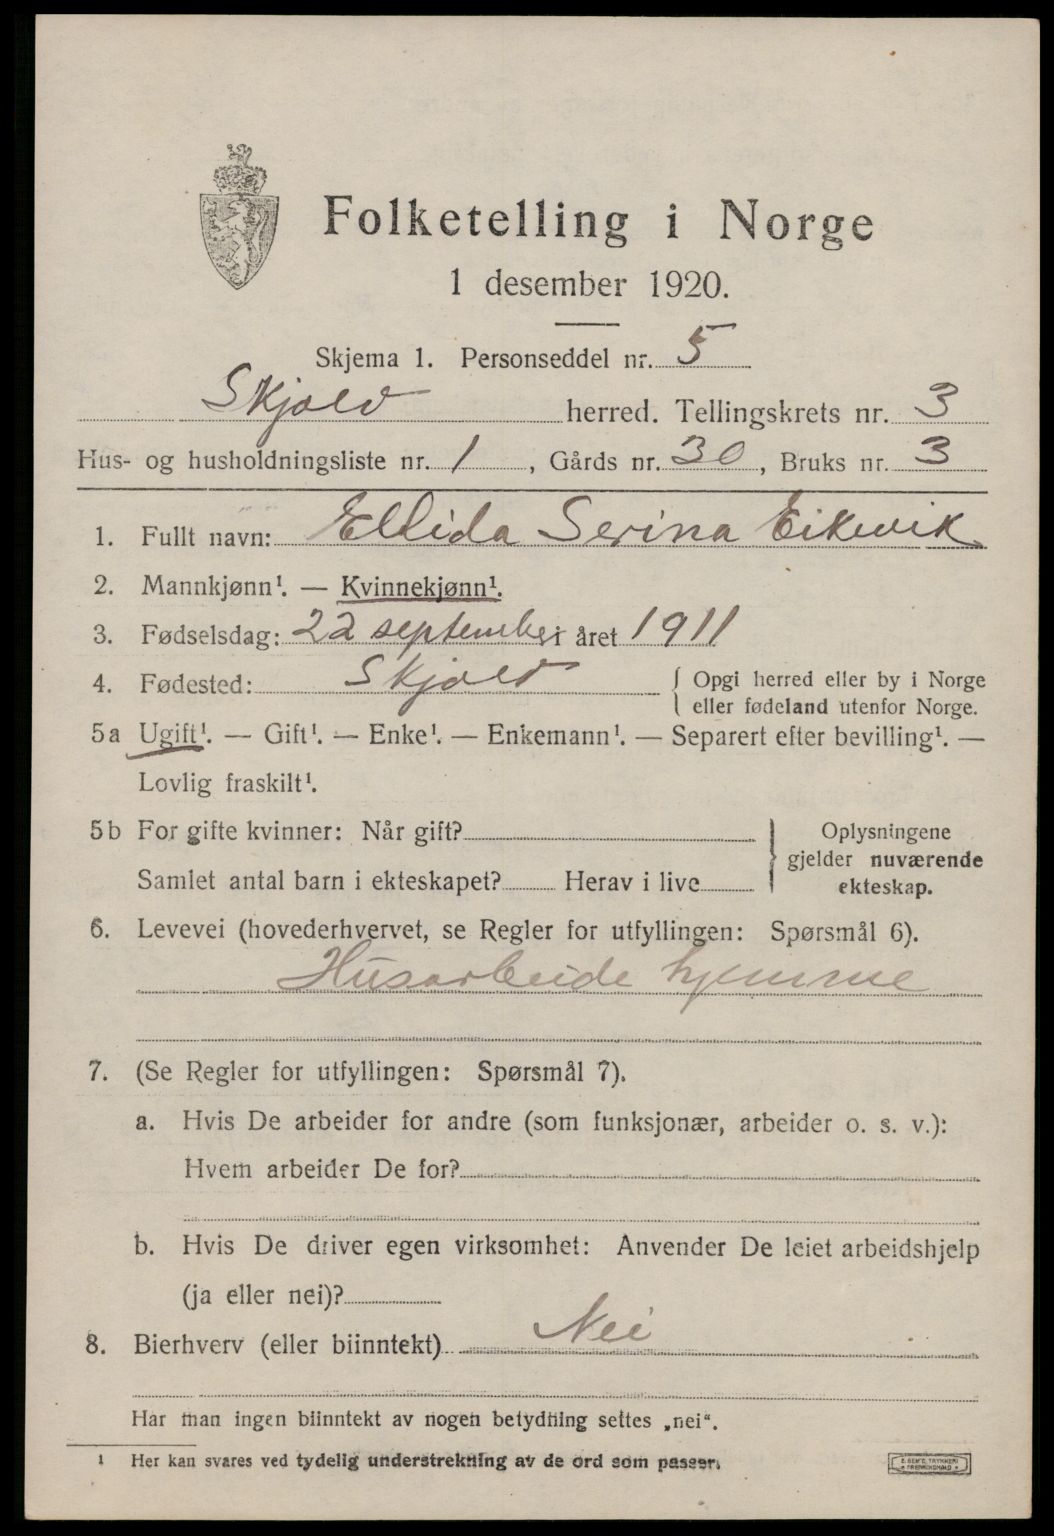 Folketelling i Norge
1 desember 1920.
Skjema 1. Personseddel nr. 5
Skjold herred. Tellingskrets nr. 3
Hus- og husholdningsliste nr. 1, Gårds nr. 30, Bruks nr. 3
1. Fullt navn: Ellida Serina Eikevik
2. Mannkjønn¹. — Kvinnekjønn¹.
3. Fødselsdag: 22 september i året 1911
4. Fødested: Skjold { Opgi herred eller by i Norge
eller fødeland utenfor Norge.
5a Ugift¹. — Gift¹. — Enke¹. — Enkemann¹. — Separert efter bevilling¹. —
Lovlig fraskilt¹.
5b For gifte kvinner: Når gift? } Oplysningene
gjelder nuværende
Samlet antal barn i ekteskapet? Herav i live
ekteskap.
6. Levevei (hovederhvervet, se Regler for utfyllingen: Spørsmål 6).
Husarbeide hjemme
7. (Se Regler for utfyllingen: Spørsmål 7).
a. Hvis De arbeider for andre (som funksjonær, arbeider o. s. v.):
Hvem arbeider De for?
b. Hvis De driver egen virksomhet: Anvender De leiet arbeidshjelp
(ja eller nei)?
8. Bierhverv (eller biinntekt) Nei
Har man ingen biinntekt av nogen betydning settes „nei“.
¹ Her kan svares ved tydelig understrekning av de ord som passer.